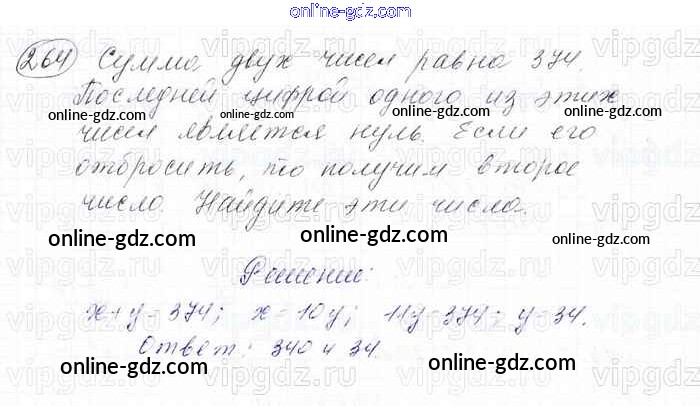 online-gdz.com
264 Сумма двух чисел равна 374.
Последней цифрой одного из этих
чисел является нуль. Если его
отбросить, то получим второе
число. Найдите эти числа.
online-gdz.com online-gdz.com online-gdz.com
Решение:
x+y=374; x=10y; 11y=374; y=34.
Ответ: 340 и 34.
online-gdz.com online-gdz.com online-gdz.com